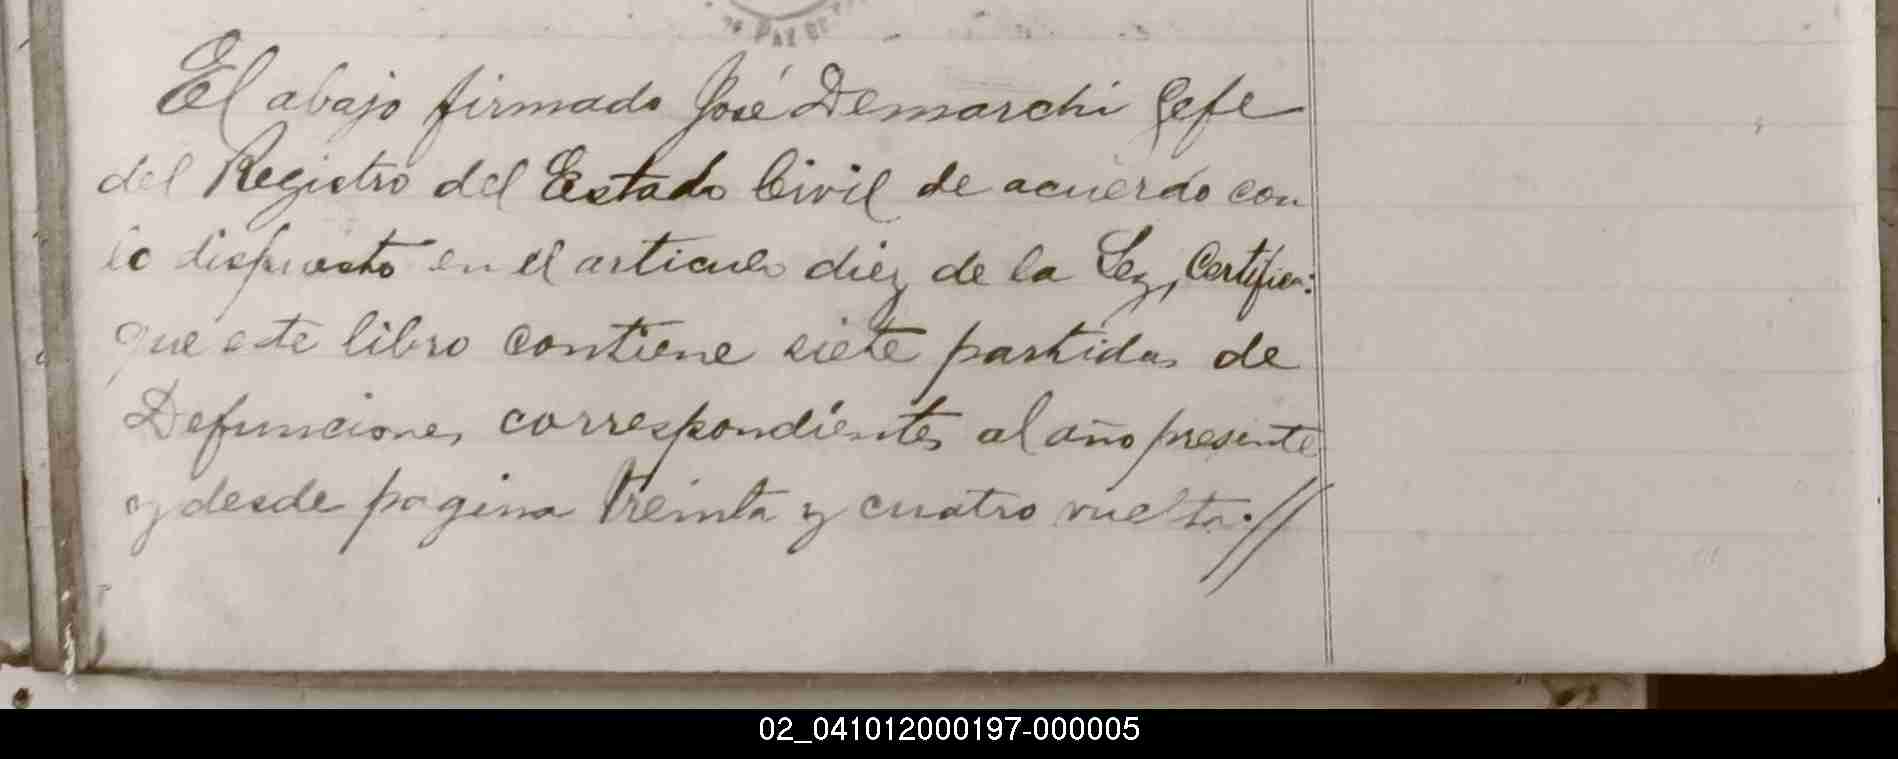 El abajo firmado José Demarchi Gefe
del Registro del Estado Civil de acuerdo con
lo dispuesto en el articulo diez de la Ley, Certifica:
que este libro contiene siete partidas de
Defunciones correspondientes al año presente
y desde pagina treinta y cuatro vuelta.//
02_041012000197-000005